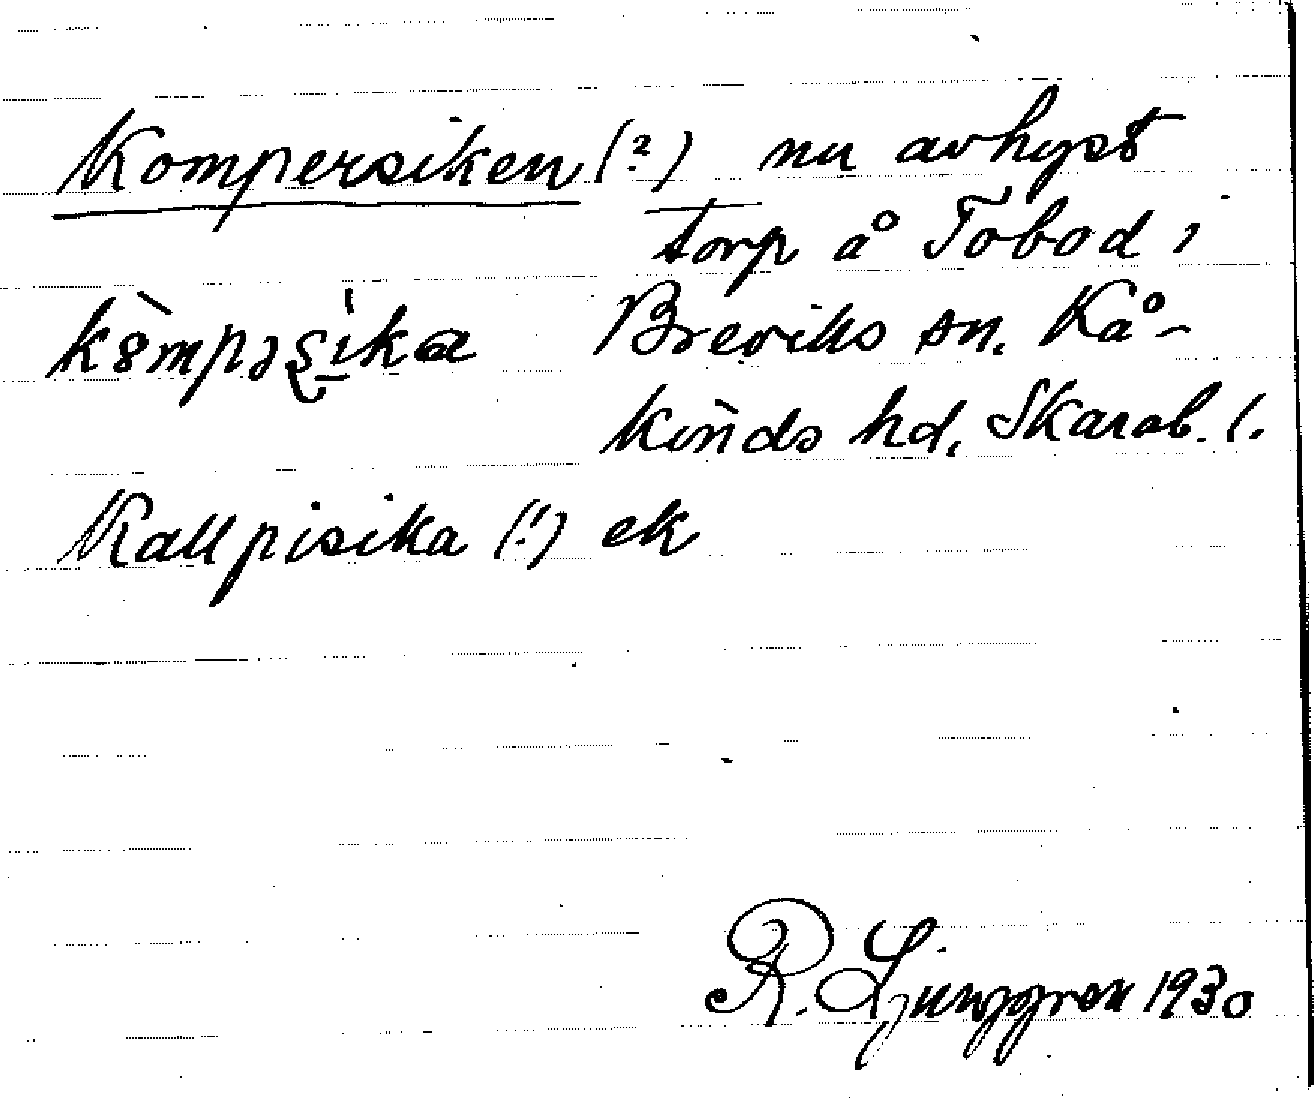 Kompersiken (?) nu avhyst
torp å Tobod i
Breviks sn. Kå-
kinds hd, Skarab. l.
kȯ̀mpəsika
Kallpisika (!) ek
R. Ljunggren 1930